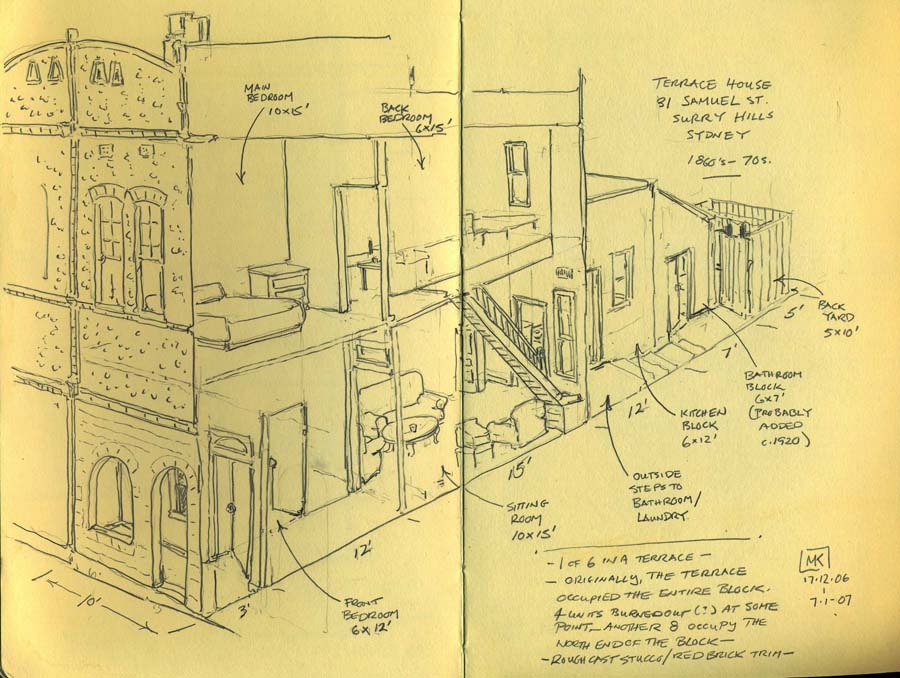 MAIN
BEDROOM
10x15'
BACK
BEDROOM
6x15'
TERRACE HOUSE
31 SAMUEL ST.
SURRY HILLS
SYDNEY
1860's - 70s.
BACK
YARD
5x10'
5'
7'
BATHROOM
BLOCK
6x7'
(PROBABLY
ADDED
c.1920)
12'
KITCHEN
BLOCK
6x12'
OUTSIDE
STEPS TO
BATHROOM/
LAUNDRY.
15'
SITTING
ROOM
10x15'
12'
FRONT
BEDROOM
6x12'
3'
10'
- 1 OF 6 IN A TERRACE -
- ORIGINALLY, THE TERRACE
OCCUPIED THE ENTIRE BLOCK.
4 UNITS BURNED OUT (?) AT SOME
POINT - ANOTHER 8 OCCUPY THE
NORTH END OF THE BLOCK -
- ROUGHCAST STUCCO/RED BRICK TRIM -
MK
17.12.06
7-1-07